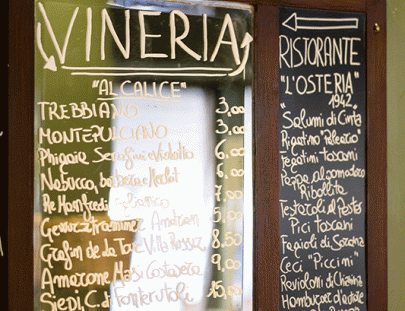 VINERIA
"AL CALICE"
TREBBIANO 3,00
MONTEPULCIANO 3,00
6,00
Nebucco, barbera e Merlot 6,00
Re Manfredi 7,00
Gewurztraminer 5,00
Grafin de la Tare Villa Russiz 8.50
Amarone Masi Costasera 9,00
Siedi, C. di Fonterutoli 15,00
RISTORANTE
"L'OSTERIA"
1942
Salumi di Cinta
Rigatino
Fegatini toscani
Pappa al pomodoro
Ribollita
Testaroli al Pesto
Pici toscani
Fagioli di Sorana
Ceci "Piccini"
Ravioloni di Chianina
Hamburger